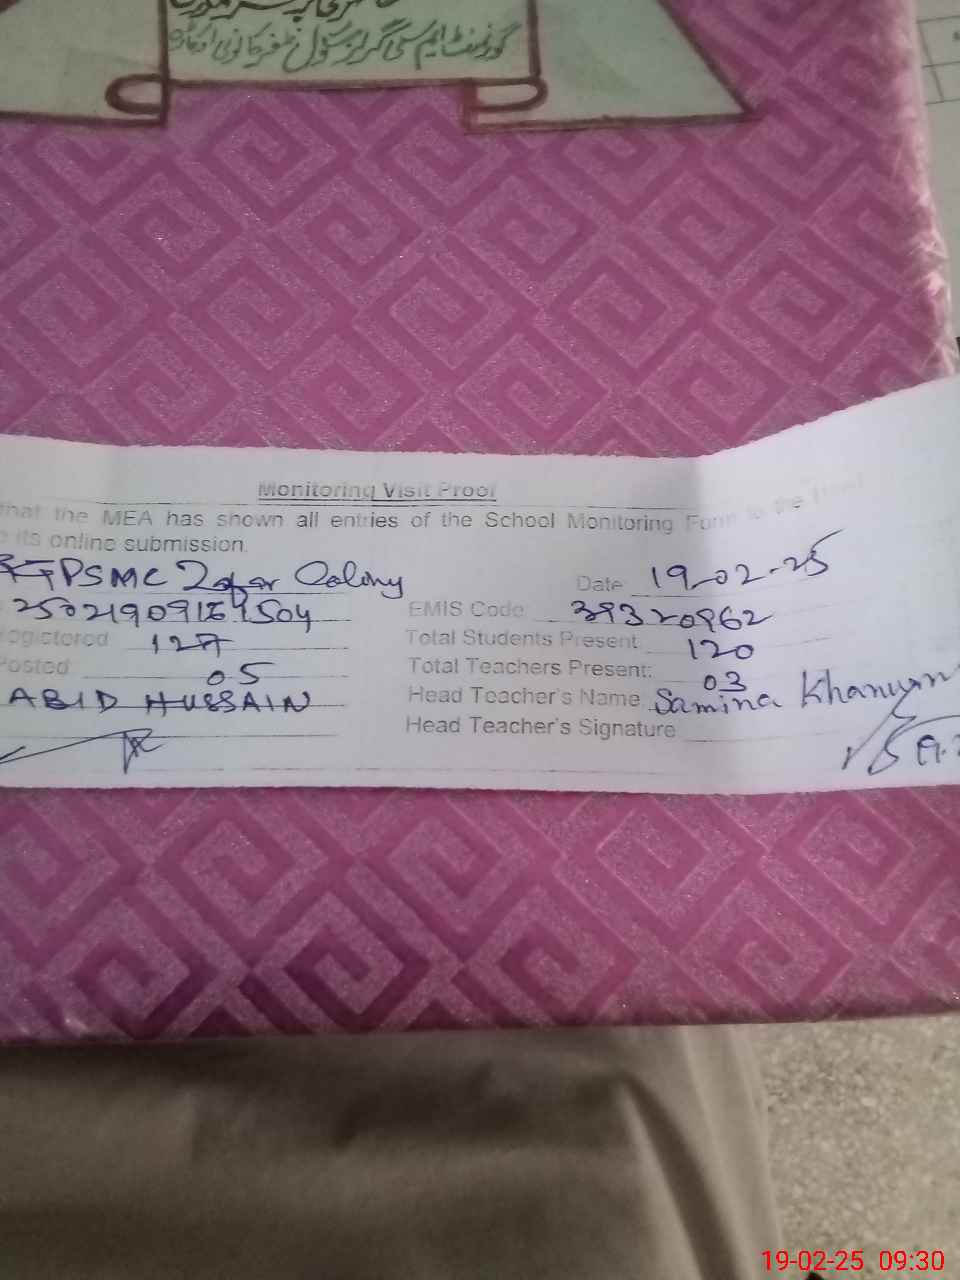 گورنمنٹ ایم سی گرلز سکول ظفر کالونی اوکاڑہ
Monitoring Visit Proof
that the MEA has shown all entries of the School Monitoring Form to the Head
its online submission.
GPSMC Zafar Colony Date 19-02-25
EMIS Code 39320962
egistered 127 Total Students Present 120
Posted 05 Total Teachers Present: 03
ABID HUSSAIN Head Teacher's Name Samina Khanum
Head Teacher's Signature
19-02-25 09:30